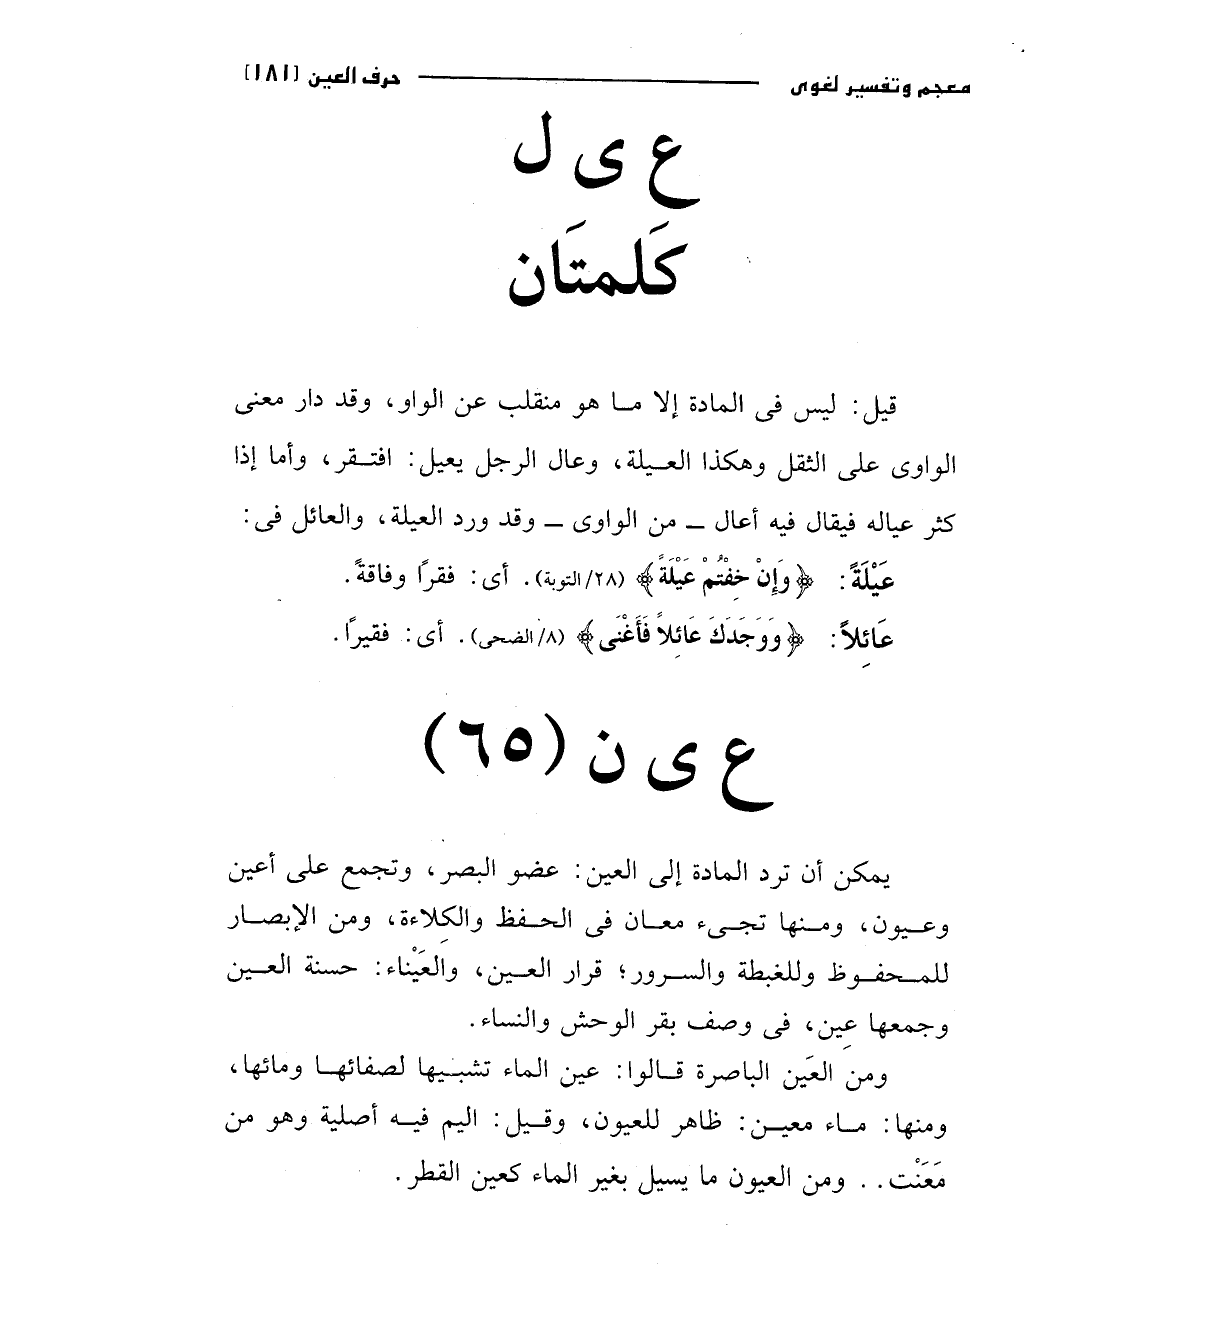 معجم وتفسير لغوى حرف العين [١٨١]
ع ى ل
كَلمتَان
قيل: ليس فى المادة إلا مـا هو منقلب عن الواو، وقد دار معنى
الواوى على الثقل وهكذا العـيلة، وعال الرجل يعيل: افتـقر، وأما إذا
كثر عياله فيقال فيه أعال ـ من الواوى ـ وقد ورد العيلة، والعائل فى:
عَيْلَةً: ﴿وَإِنْ خِفْتُمْ عَيْلَةً﴾ (٢٨/التوبة). أى: فقرًا وفاقةً.
عَائِلاً: ﴿وَوَجَدَكَ عَائِلاً فَأَغْنَى﴾ (٨/الضحى). أى: فقيرًا.
ع ى ن (٦٥)
يمكن أن ترد المادة إلى العين: عضو البصر، وتجمع على أعين
وعـيون، ومـنها تجـىء معـان فى الحـفظ والكِلاءة، ومن الإبصـار
للمـحفـوظ وللغبطة والسـرور؛ قرار العـين، والعَيْناء: حسنة العـين
وجمعها عِين، فى وصف بقر الوحش والنساء.
ومن العَين الباصرة قـالوا: عين الماء تشبـيها لصفائهـا ومائها،
ومنها: مـاء معيـن: ظاهر للعيون، وقـيل: اليم فيـه أصلية وهو من
مَعَنْت. . ومن العيون ما يسيل بغير الماء كعين القطر.